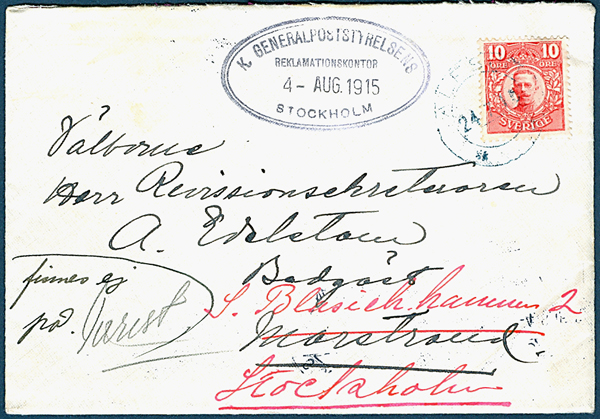 K. GENERALPOSTSTYRELSENS
REKLAMATIONSKONTOR
4 - AUG. 1915
STOCKHOLM
10 10
ÖRE ÖRE
SVERIGE
24
Välborne
Herr Revissionsekreteraren
A. Edelstam
Badgäst
S. Blasieh. hamnen 2
Marstrand
Stockholm
finnes ej
på